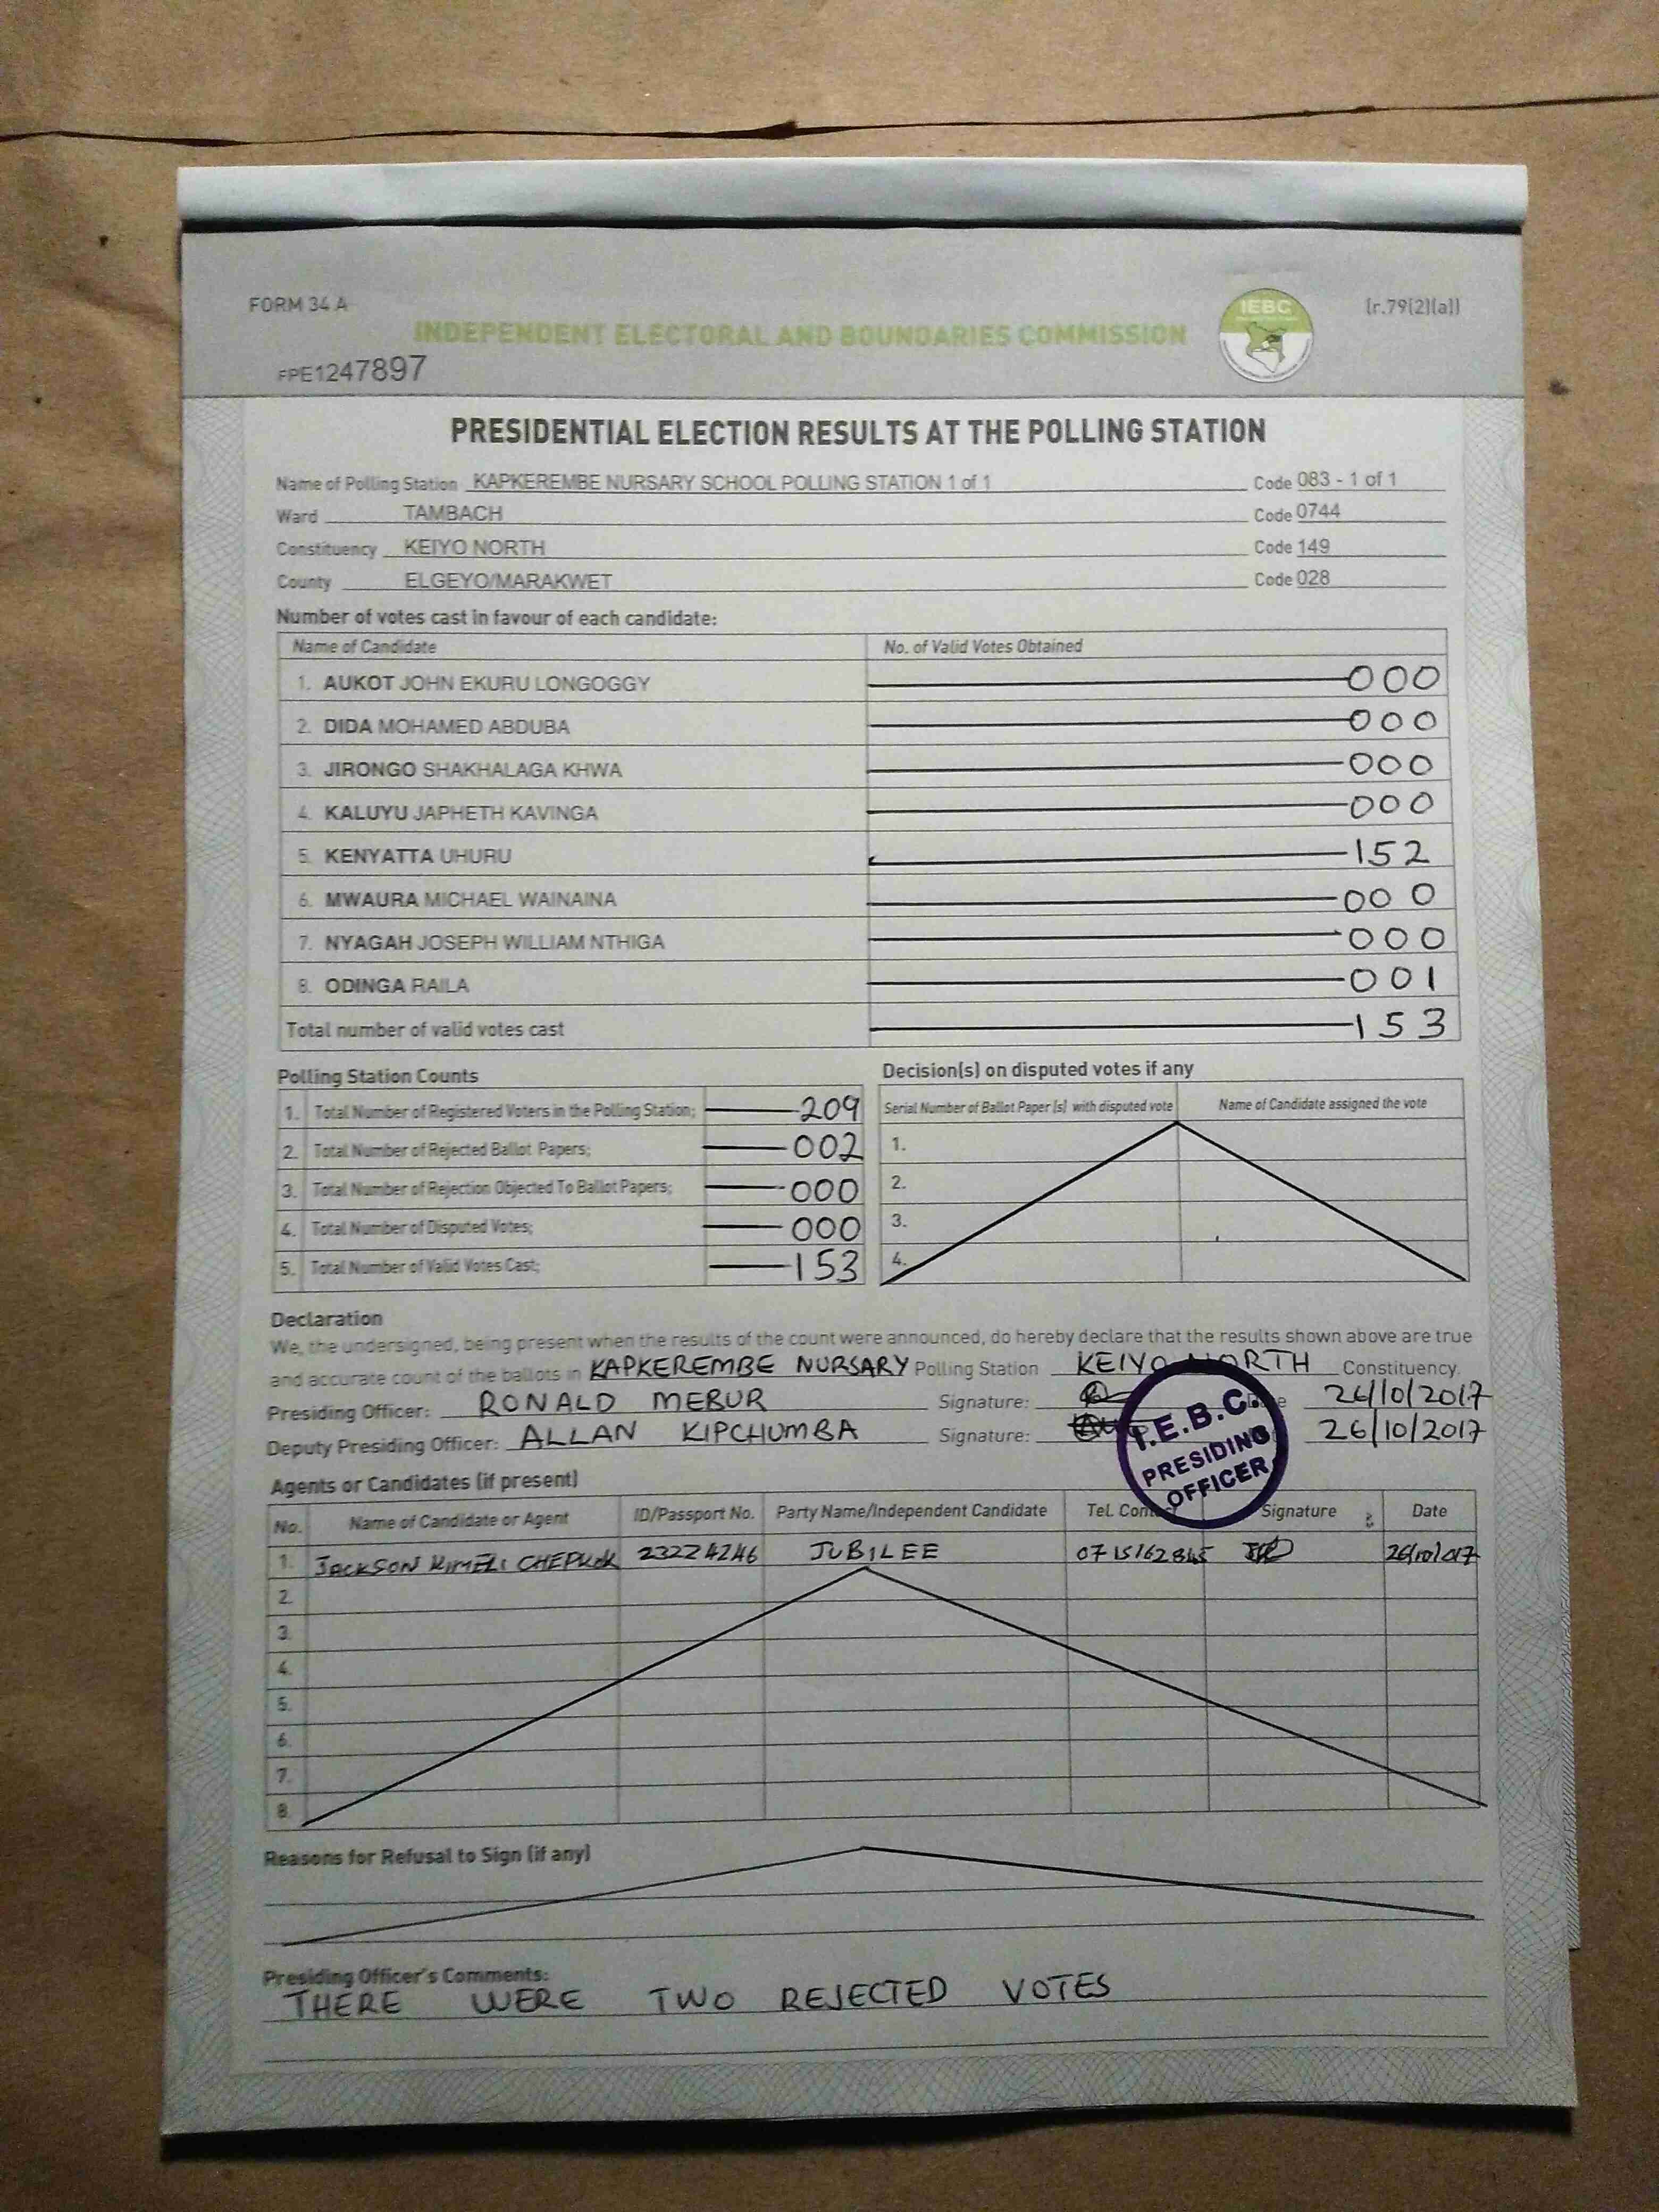 FORM 34 A
IEBC
[r.79(2)(a)]
INDEPENDENT ELECTORAL AND BOUNDARIES COMMISSION
FPE1247897
PRESIDENTIAL ELECTION RESULTS AT THE POLLING STATION
Name of Polling Station KAPKEREMBE NURSARY SCHOOL POLLING STATION 1 of 1 Code 083 - 1 of 1
Ward TAMBACH Code 0744
Constituency KEIYO NORTH Code 149
County ELGEYO/MARAKWET Code 028
Number of votes cast in favour of each candidate:
Name of Candidate No. of Valid Votes Obtained
1. AUKOT JOHN EKURU LONGOGGY 000
2. DIDA MOHAMED ABDUBA 000
3. JIRONGO SHAKHALAGA KHWA 000
4. KALUYU JAPHETH KAVINGA 000
5. KENYATTA UHURU 152
6. MWAURA MICHAEL WAINAINA 000
7. NYAGAH JOSEPH WILLIAM NTHIGA 000
8. ODINGA RAILA 001
Total number of valid votes cast 153
Polling Station Counts
1. Total Number of Registered Voters in the Polling Station; 209
2. Total Number of Rejected Ballot Papers; 002
3. Total Number of Rejection Objected To Ballot Papers; 000
4. Total Number of Disputed Votes; 000
5. Total Number of Valid Votes Cast; 153
Decision(s) on disputed votes if any
Serial Number of Ballot Paper (s) with disputed vote Name of Candidate assigned the vote
1.
2.
3.
4.
Declaration
We, the undersigned, being present when the results of the count were announced, do hereby declare that the results shown above are true
and accurate count of the ballots in KAPKEREMBE NURSARY Polling Station KEIYO NORTH Constituency.
Presiding Officer: RONALD MEBUR Signature: 26/10/2017
Deputy Presiding Officer: ALLAN KIPCHUMBA Signature: 26/10/2017
I.E.B.C.
PRESIDING
OFFICER
Agents or Candidates (if present)
No. Name of Candidate or Agent ID/Passport No. Party Name/Independent Candidate Tel. Contact Signature Date
1. JACKSON KIMELI 23224246 JUBILEE
2.
3.
4.
5.
6.
7.
8.
Reasons for Refusal to Sign (if any)
Presiding Officer's Comments:
THERE WERE TWO REJECTED VOTES